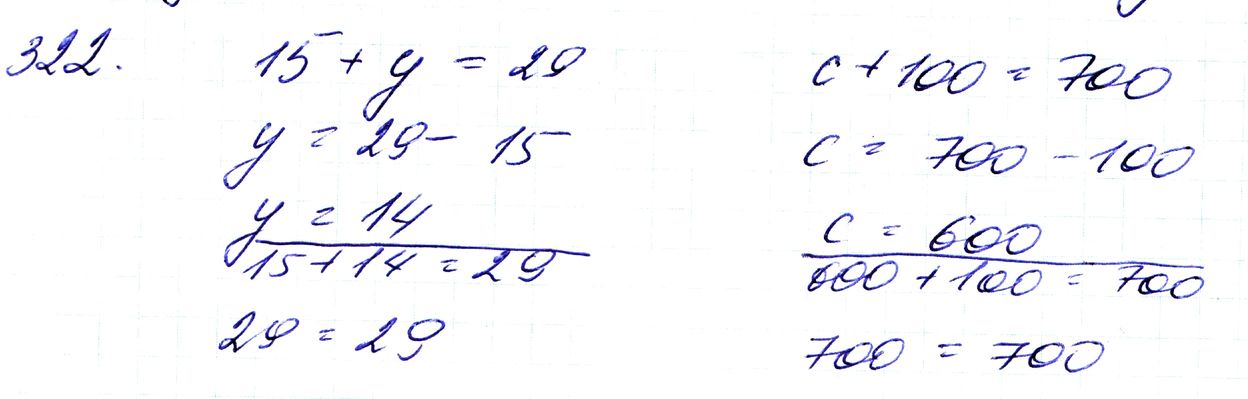 322.
15 + y = 29
y = 29 - 15
y = 14
15 + 14 = 29
29 = 29
c + 100 = 700
c = 700 - 100
c = 600
600 + 100 = 700
700 = 700